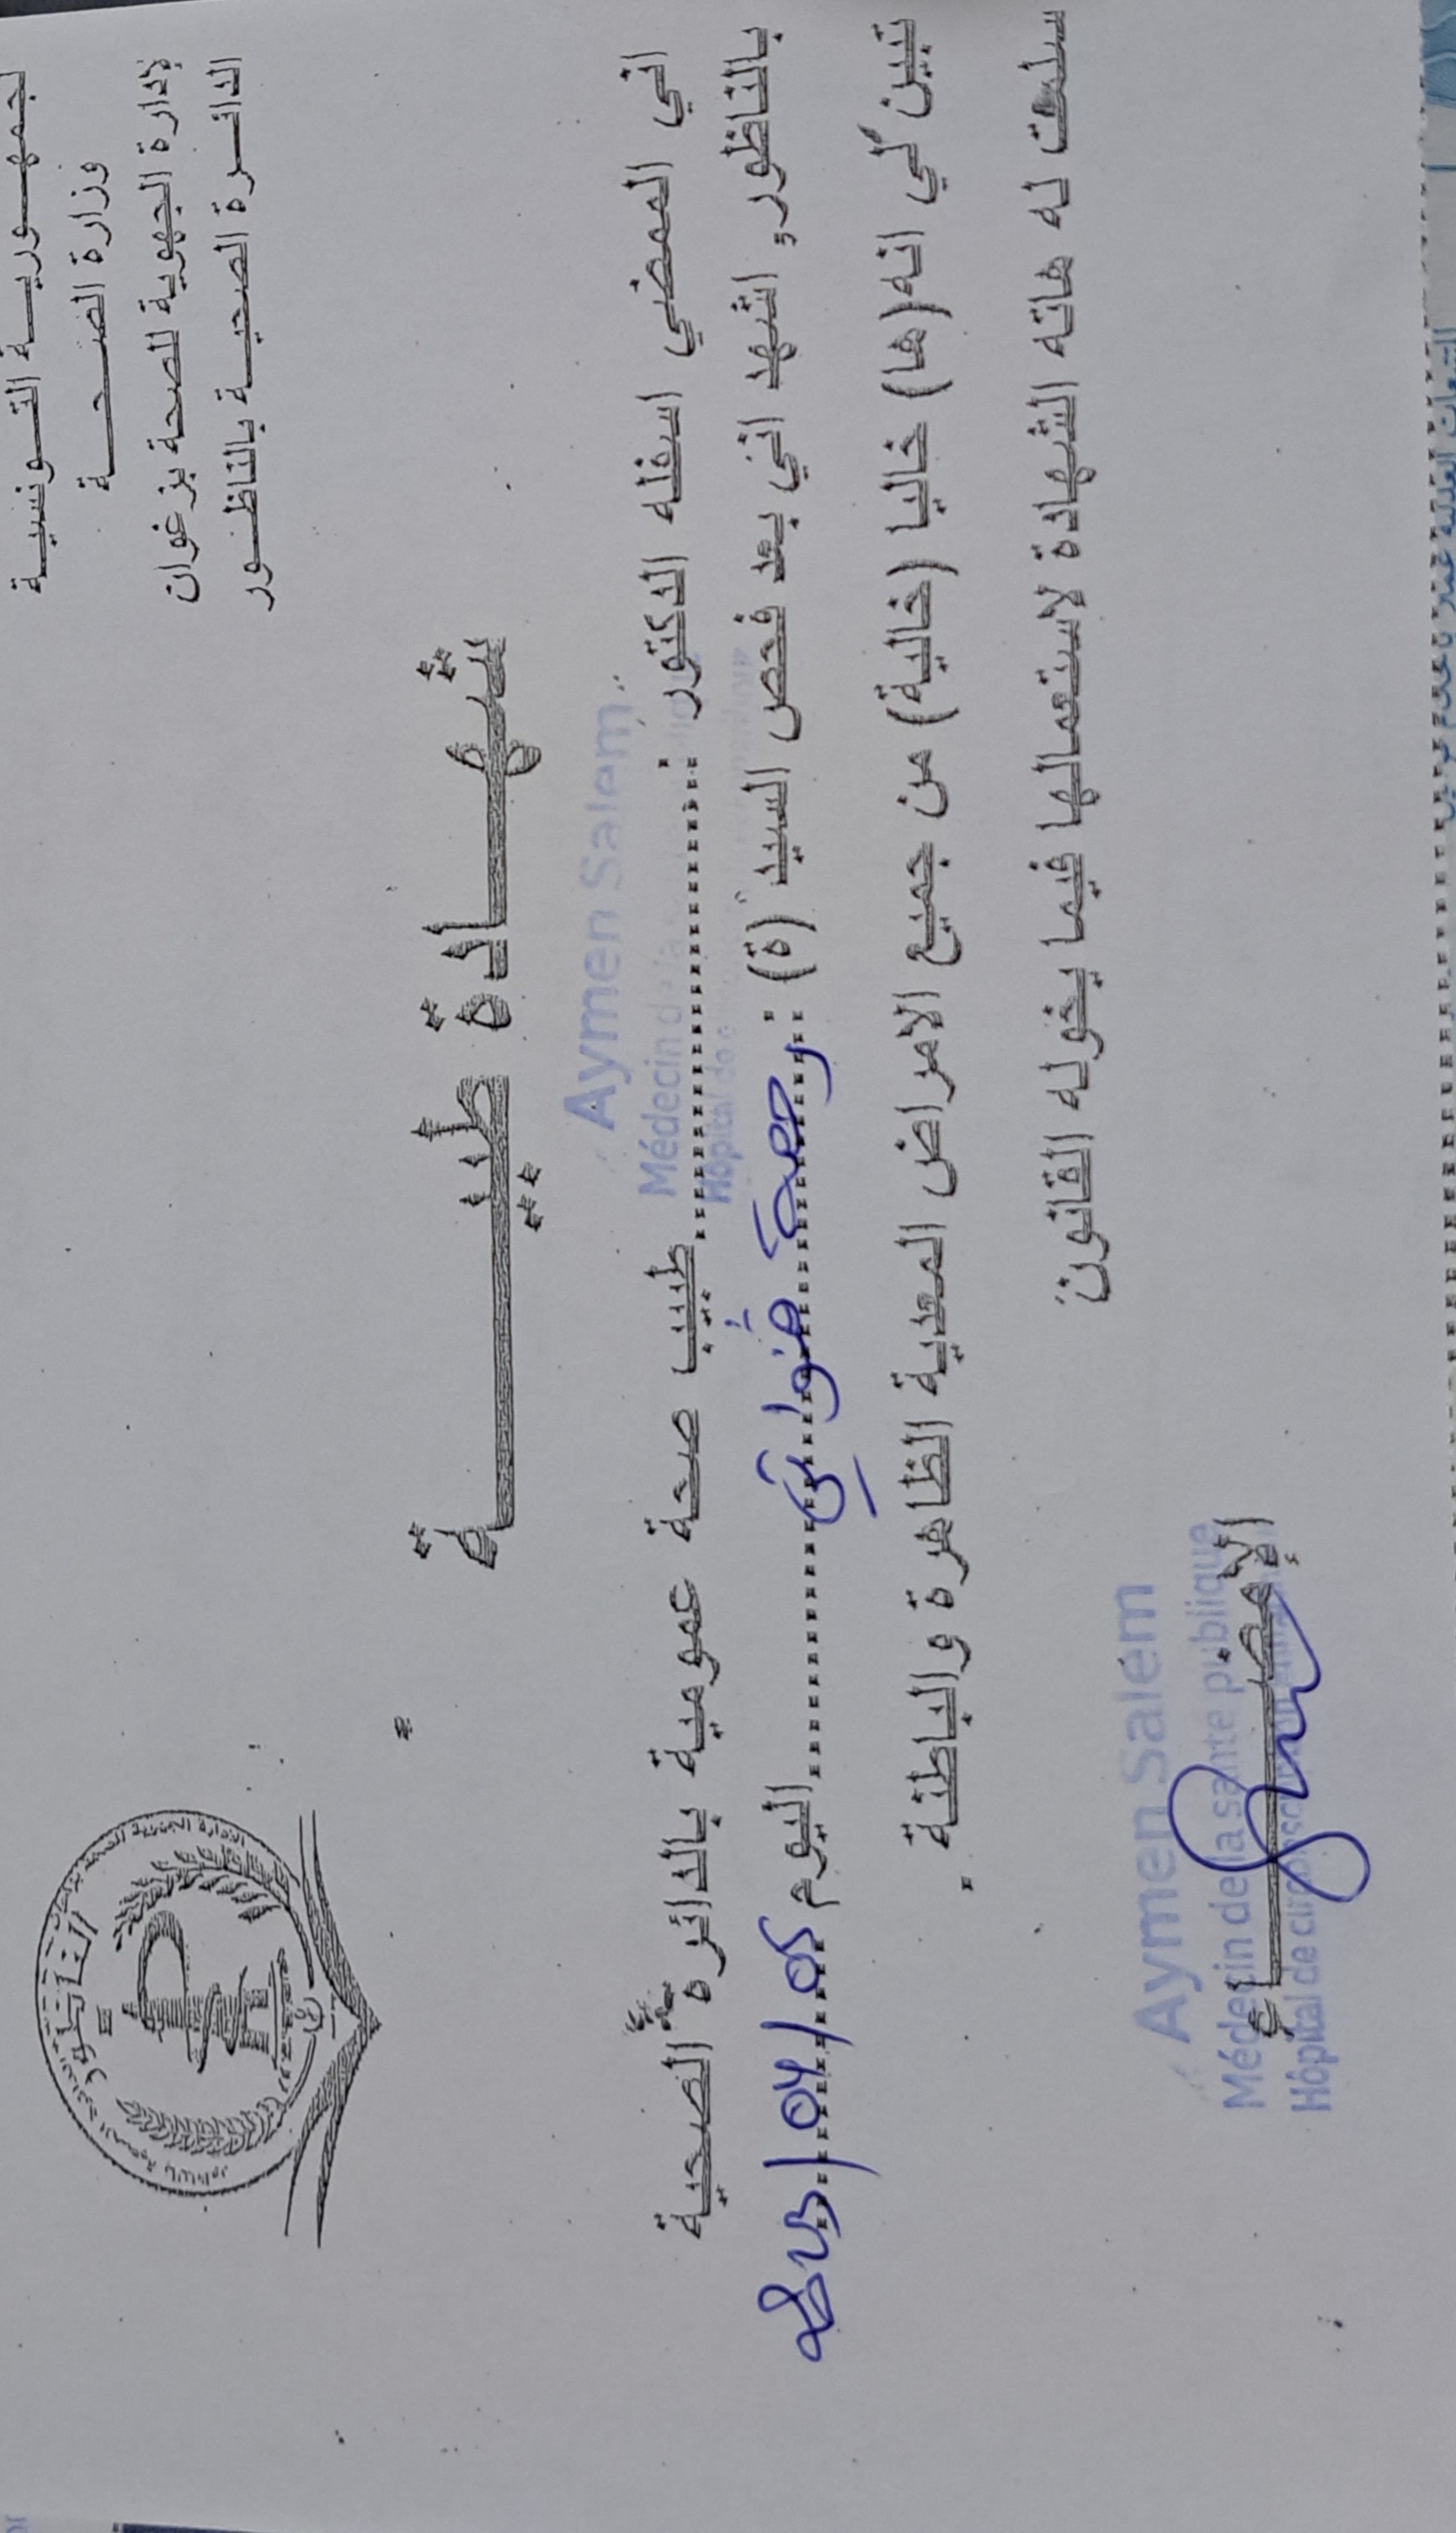 الجمهورية التونسية
وزارة الصحة
الإدارة الجهوية للصحة بزغوان
الدائرة الصحية بالناظور
الناظور
شهادة طبية
Aymen Salem
Médecin de la
Hôpital de
اني الممضي اسفله الدكتور : طبيب صحة عمومية بالدائرة الصحية
بالناظور, اشهد انني بعد فحص السيد (ة) : اليوم 05/04/
تبين لي انه (ها) خاليا (خالية) من جميع الامراض المعدية الظاهرة والباطنة .
سلمت له هاته الشهادة لاستعمالها فيما يخوله القانون
الإمضاء
Aymen Salem
Médecin de la santé publique
Hôpital de circonscription